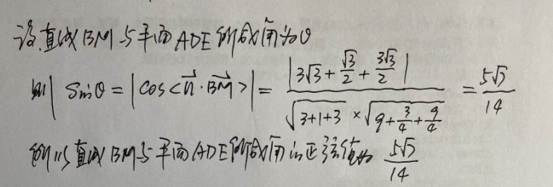 设直线BM与平面ADE所成角为θ
则|sinθ=|cos<n⃗·BM⃗>|= |3√3+√3/2+3√3/2| / (√(3+1+3) ×√(9+3/4+9/4)) = 5√7/14
所以直线BM与平面ADE所成角的正弦值为 5√7/14